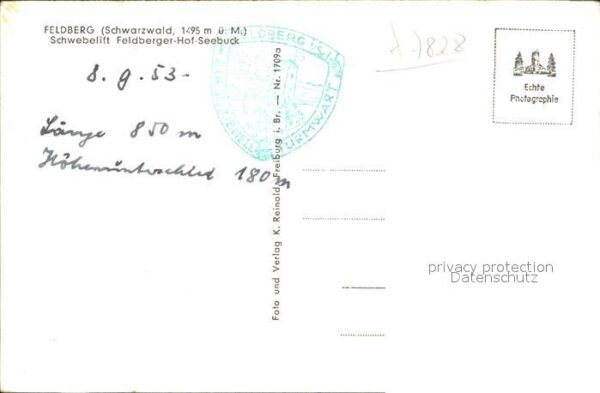 FELDBERG (Schwarzwald, 1495 m ü. M.)
Schwebelift Feldberger-Hof-Seebuck
8. 9. 53-
Länge 850 m
Höhenunterschied 180 m
FELDBERG
TURMWART
Foto und Verlag K. Reinold, Freiburg i. Br. — Nr. 1709a
7828
Echte
Photographie
privacy protection
Datenschutz